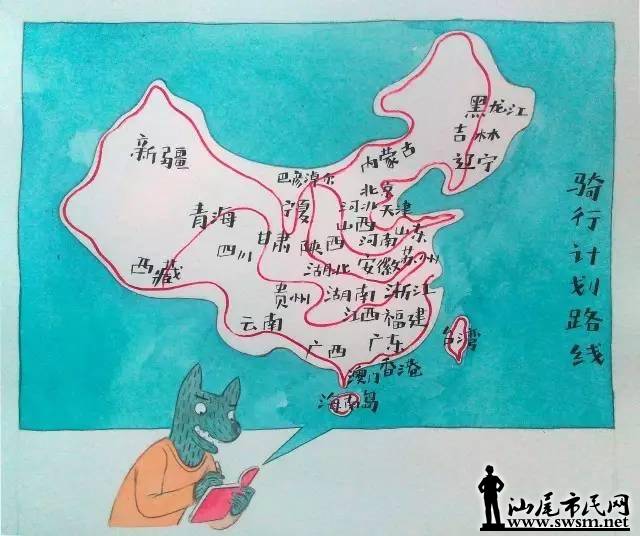 黑龙江
吉林
辽宁
内蒙古
新疆
巴彦淖尔
北京
河北 天津
宁夏
山西
青海
河南 山东
甘肃
陕西
四川
安徽 苏州
湖北
西藏
贵州
湖南
浙江
江西
福建
云南
广西
广东
台湾
澳门 香港
海南岛
骑行计划路线
汕尾市民网
www.swsm.net